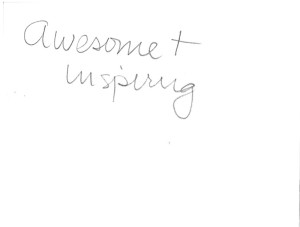 Awesome +
inspiring